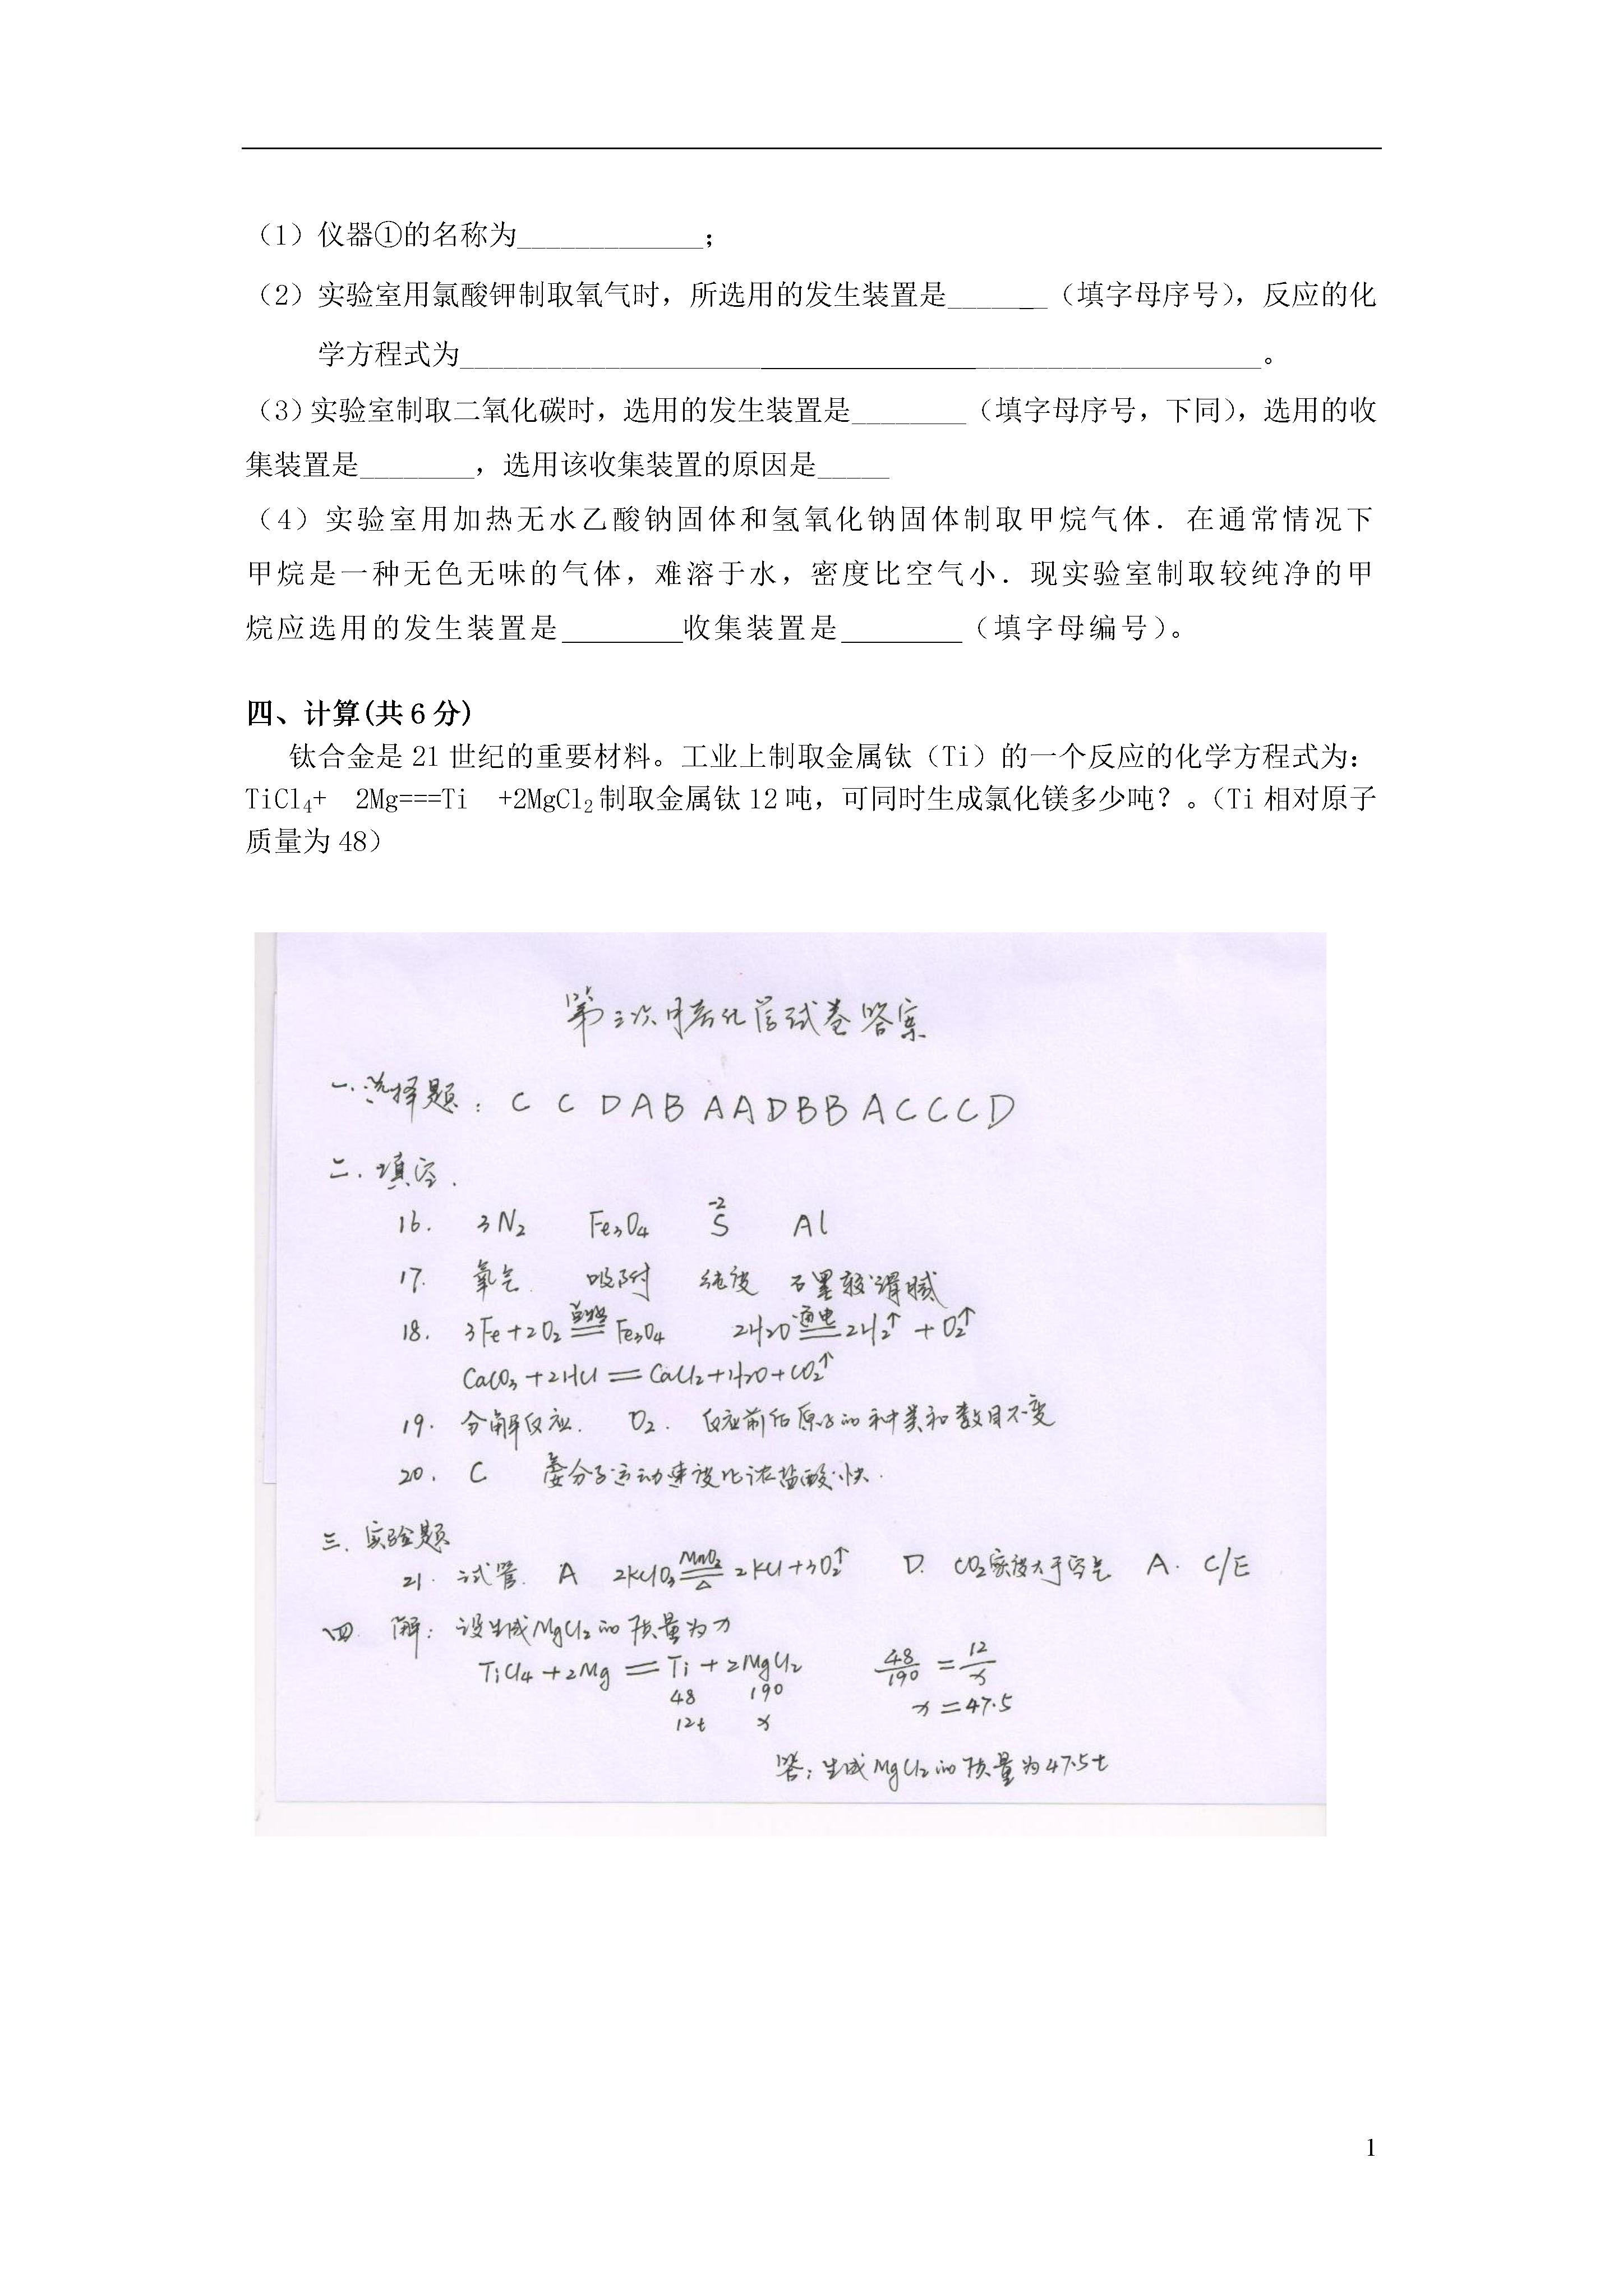 （1）仪器①的名称为_____________；
（2）实验室用氯酸钾制取氧气时，所选用的发生装置是_______（填字母序号），反应的化
学方程式为________________________________________________________。
（3）实验室制取二氧化碳时，选用的发生装置是________（填字母序号，下同），选用的收
集装置是________，选用该收集装置的原因是_____
（4）实验室用加热无水乙酸钠固体和氢氧化钠固体制取甲烷气体．在通常情况下
甲烷是一种无色无味的气体，难溶于水，密度比空气小．现实验室制取较纯净的甲
烷应选用的发生装置是________收集装置是________（填字母编号）。
四、计算(共6分)
钛合金是21世纪的重要材料。工业上制取金属钛（Ti）的一个反应的化学方程式为：
TiCl₄+ 2Mg===Ti +2MgCl₂制取金属钛12吨，可同时生成氯化镁多少吨？。（Ti相对原子
质量为48）
第三次月考化学试卷答案
一.选择题：C C D A B A A D B B A C C C D
二.填空.
16. 3N₂ Fe₃O₄ S⁻² Al
17. 氧气 吸附 纯度 石墨较滑腻
18. 3Fe+2O₂ 点燃== Fe₃O₄ 2H₂O 通电== 2H₂↑+O₂↑
CaCO₃+2HCl==CaCl₂+H₂O+CO₂↑
19. 分解反应. O₂. 反应前后原子的种类和数目不变
20. C 氨分子运动速度比浓盐酸快.
三.实验题
21. 试管. A 2KClO₃ MnO₂==△ 2KCl+3O₂↑ D. CO₂密度大于空气 A. C/E
四. 解：设生成MgCl₂的质量为x
TiCl₄+2Mg==Ti+2MgCl₂ 48/190=12/x
48 190 x=47.5
12t x
答：生成MgCl₂的质量为47.5t
1